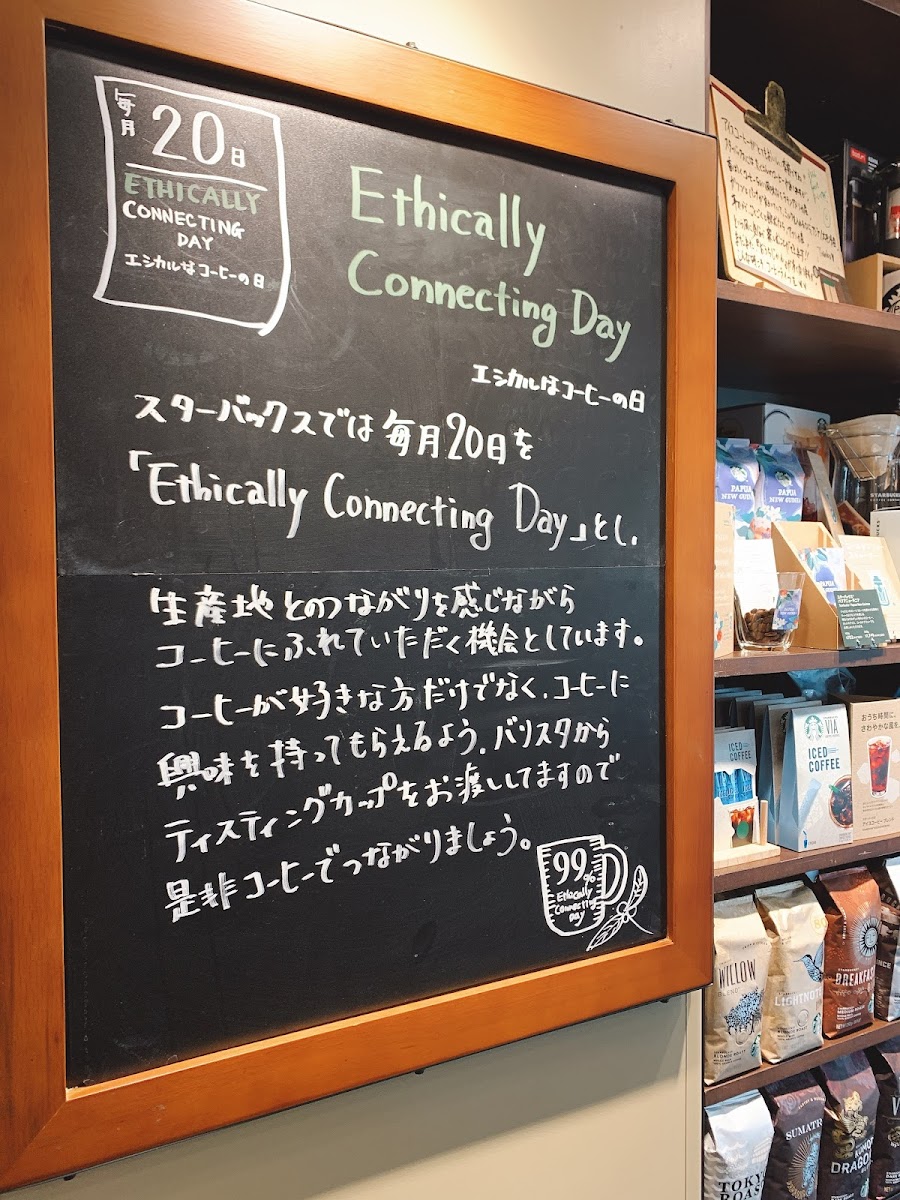 毎月
20日
ETHICALLY
CONNECTING
DAY
エシカルなコーヒーの日
Ethically
Connecting Day
エシカルなコーヒーの日
スターバックスでは毎月20日を
「Ethically Connecting Day」とし、
生産地とのつながりを感じながら
コーヒーにふれていただく機会としています。
コーヒーが好きな方だけでなく、コーヒーに
興味を持ってもらえるよう、バリスタから
ティスティングカップをお渡ししてますので
是非コーヒーでつながりましょう。
99%
Ethically
Connecting
Day
PAPUA
NEW GUINEA
PAPUA
NEW GUINEA
STARBUCKS
ICED
COFFEE
VIA
ICED
COFFEE
おうち時間に、
さわやかな風を。
WILLOW
BLEND
BLONDE ROAST
LIGHTNOTE
BLONDE ROAST
BREAKFAST
MEDIUM ROAST
TOKYO
ROAST
SUMATRA
KOMODO
DRAGON
VIA